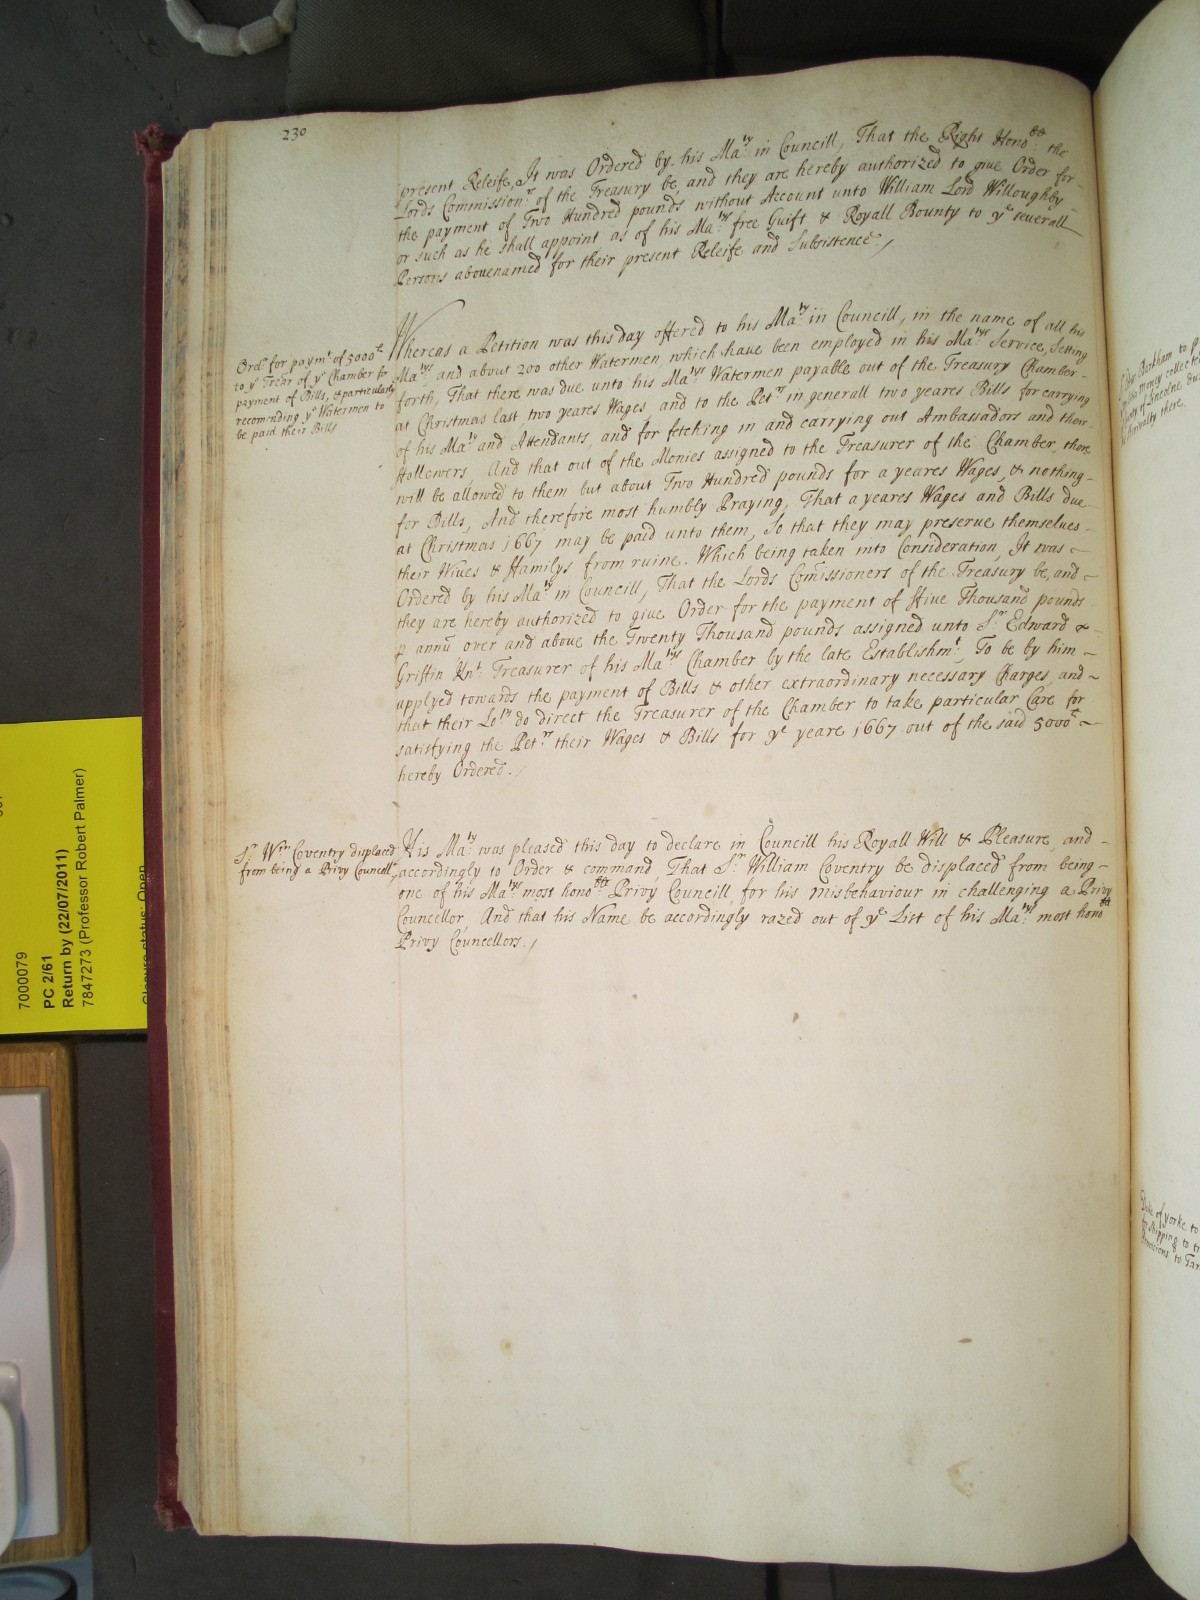 230
present Releife, It was Ordered by his Ma.ty in Councill, That the Right Hono.ble the
Lords Commission.rs of the Treasury be, and they are hereby authorized to giue Order for
the payment of Two Hundred pounds without Account unto William Lord Willoughby
or such as he shall appoint as of his Ma.tys free Guift & Royall Bounty to ye seuerall
Persons abouenamed for their present Releife and Subsistence.
Ord.r for paym.t of 5000£
to ye Trear of ye Chamber for
payment of Bills, & particularly
recomending ye Watermen to
be paid their Bills
Whereas a Petition was this day offered to his Ma.ty in Councill, in the name of all his
Ma.tys and about 200 other Watermen, which haue been employed in his Ma.tys Service, Setting
forth, That there was due unto his Ma.tys Watermen payable out of the Treasury Chamber
at Christmas last, two yeares Wages, and to the Pet.rs in generall two yeares Bills for carrying
of his Ma.ty and Attendants, and for fetching in and carrying out Ambassadors and their
ffollowers. And that out of the Monies assigned to the Treasurer of the Chamber, there
will be allowed to them but about Two Hundred pounds for a yeares Wages, & nothing
for Bills, And therefore most humbly Praying, That a yeares Wages and Bills due
at Christmas 1667 may be paid unto them, So that they may preserve themselues
their Wiues & ffamilys from ruine. Which being taken into Consideration, It was
Ordered by his Ma.ty in Councill, That the Lords Comissioners of the Treasury be, and
they are hereby authorized to giue Order for the payment of ffiue Thousand pounds
p annū over and above the Twenty Thousand pounds assigned unto S.r Edward
Griffin Kn.t Treasurer of his Ma.tys Chamber by the late Establishm.t, To be by him
applyed towards the payment of Bills & other extraordinary necessary Charges, and
that their Lo.ps do direct the Treasurer of the Chamber to take particular Care for
satisfying the Pet.rs their Wages & Bills for ye yeare 1667 out of the said 5000£
hereby Ordered.
S.r W.m Coventry displaced
from being a Privy Councell.r
His Ma.ty was pleased this day to declare in Councill his Royall Will & Pleasure, and
accordingly to Order & command, That S.r William Coventry be displaced from being
one of his Ma.tys most hono.ble Privy Councill, for his misbehaviour in challenging a Privy
Councellor, And that his Name be accordingly razed out of ye List of his Ma.tys most hono.ble
Privy Councellors.
7000079
PC 2/61
Return by (22/07/2011)
7847273 (Professor Robert Palmer)
Closure status: Open
Duke of yorke to
for Shipping to
Provisions to